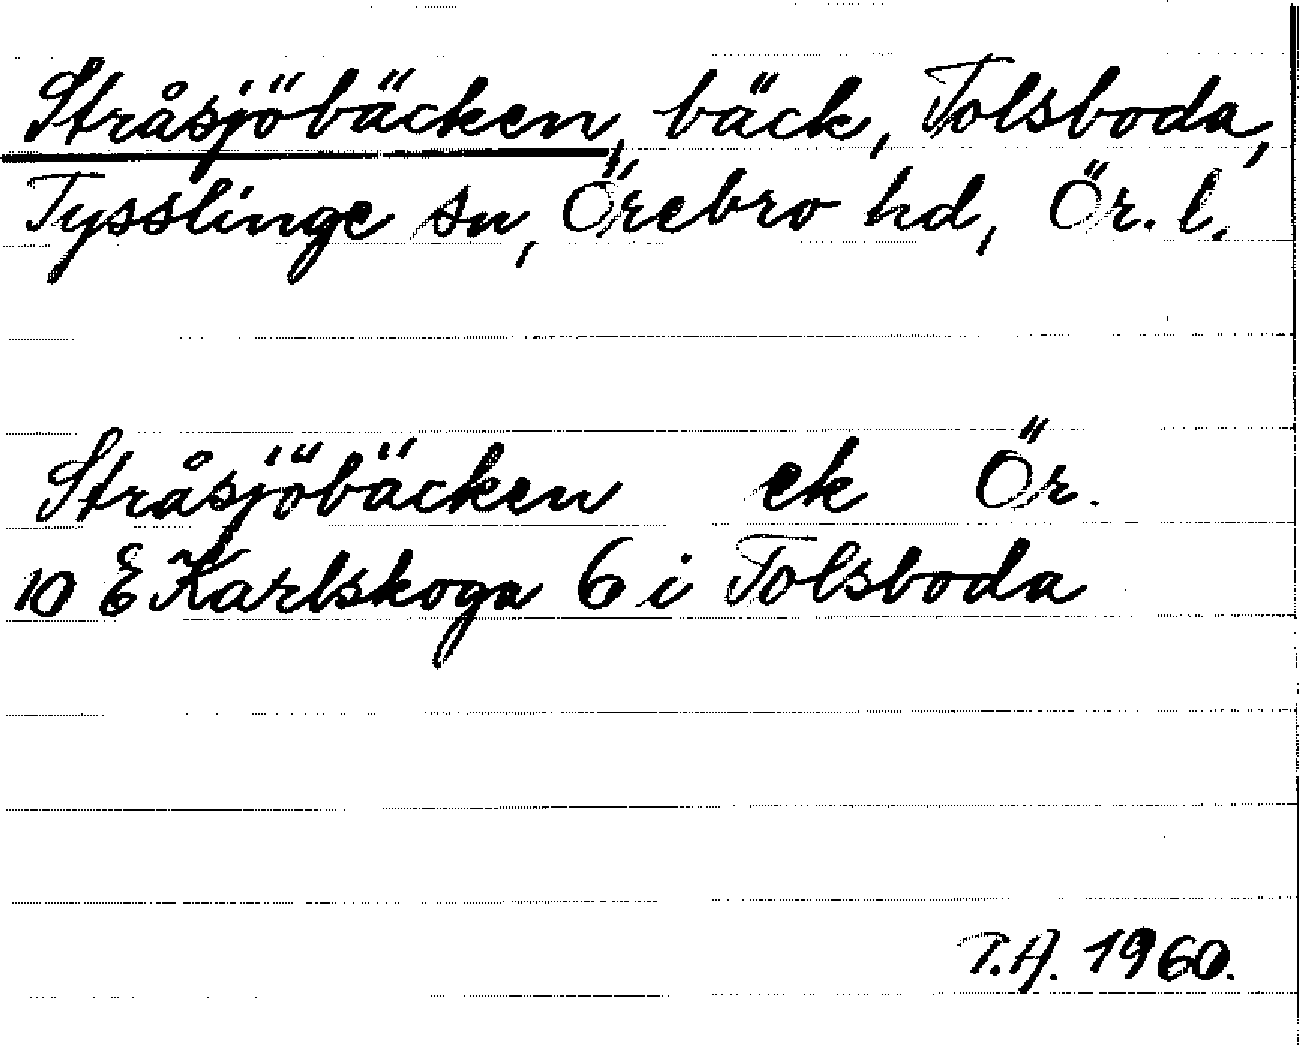 Stråsjöbäcken, bäck, Tolsboda,
Tysslinge sn, Örebro hd, Ör. l.
Stråsjöbäcken ek Ör.
10 E Karlskoga 6 i Tolsboda
T.A. 1960.